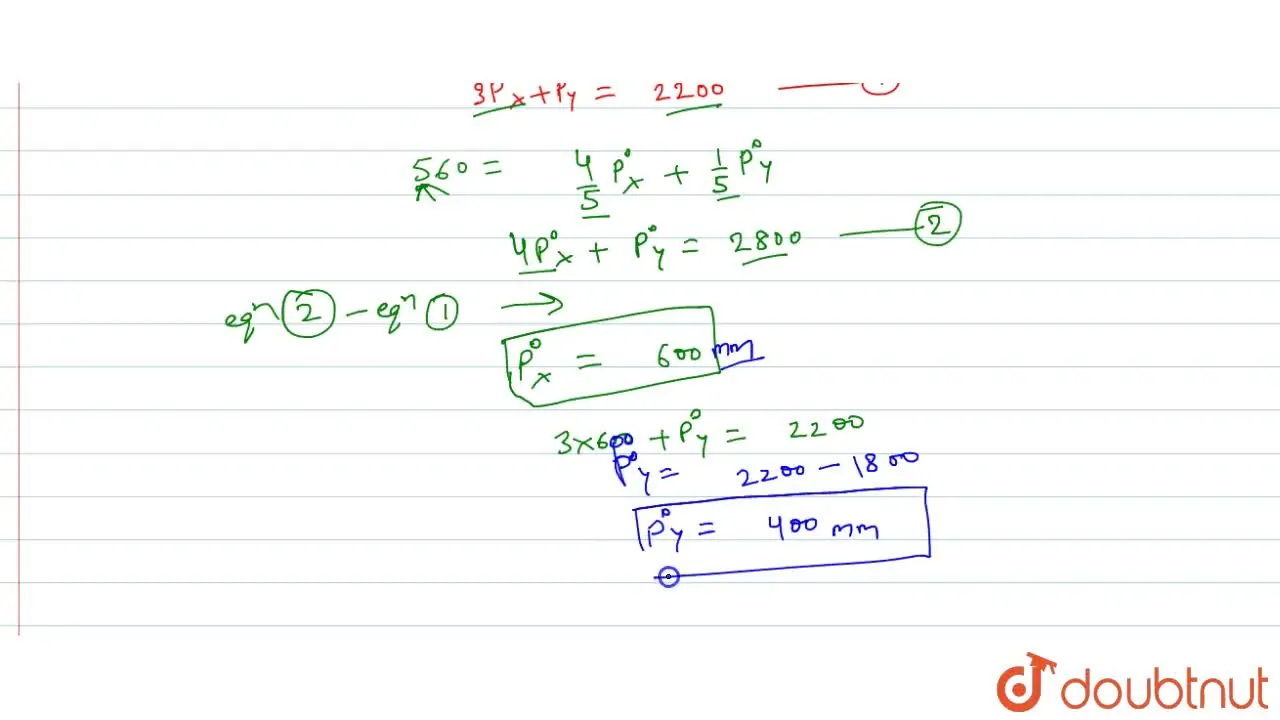 3Px + Py = 2200 —— 1
560 = 4/5 P°x + 1/5 P°y
4P°x + P°y = 2800 —— 2
eqⁿ 2 – eqⁿ 1 →
P°x = 600 mm
3×600 + P°y = 2200
P°y = 2200 – 1800
P°y = 400 mm
doubtnut